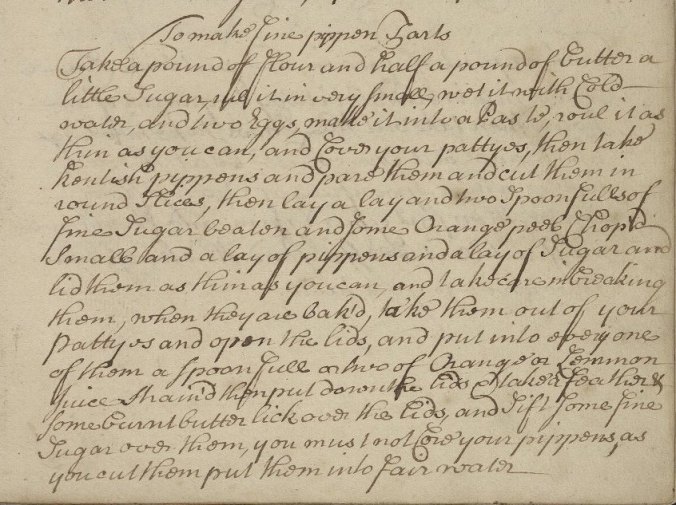 To make fine pippen Tarts
Take a pound of flour and half a pound of butter a
little Sugar, rub it in very small, wet it with Cold
water, and two Eggs, make it into a Paste, roul it as
thin as you can, and Cover your pattyes, then take
Kentish pippens and pare them and cut them in
round Slices, then lay a lay and two Spoonfulls of
fine Sugar beaten and some Orange peel Chop'd
Small and a lay of pippens and a lay of Sugar and
lid them as thin as you can, and take care in breaking
them, when they are bak'd, take them out of your
Pattyes and open the lids, and put into every one
of them a spoonfull or two of Orange or Lemmon
juice Strain'd then put down the lids & take a feather &
some burnt butter lick over the lids, and Sift Some fine
Sugar over them, you must not Core your pippens, as
you cut them put them into fair water